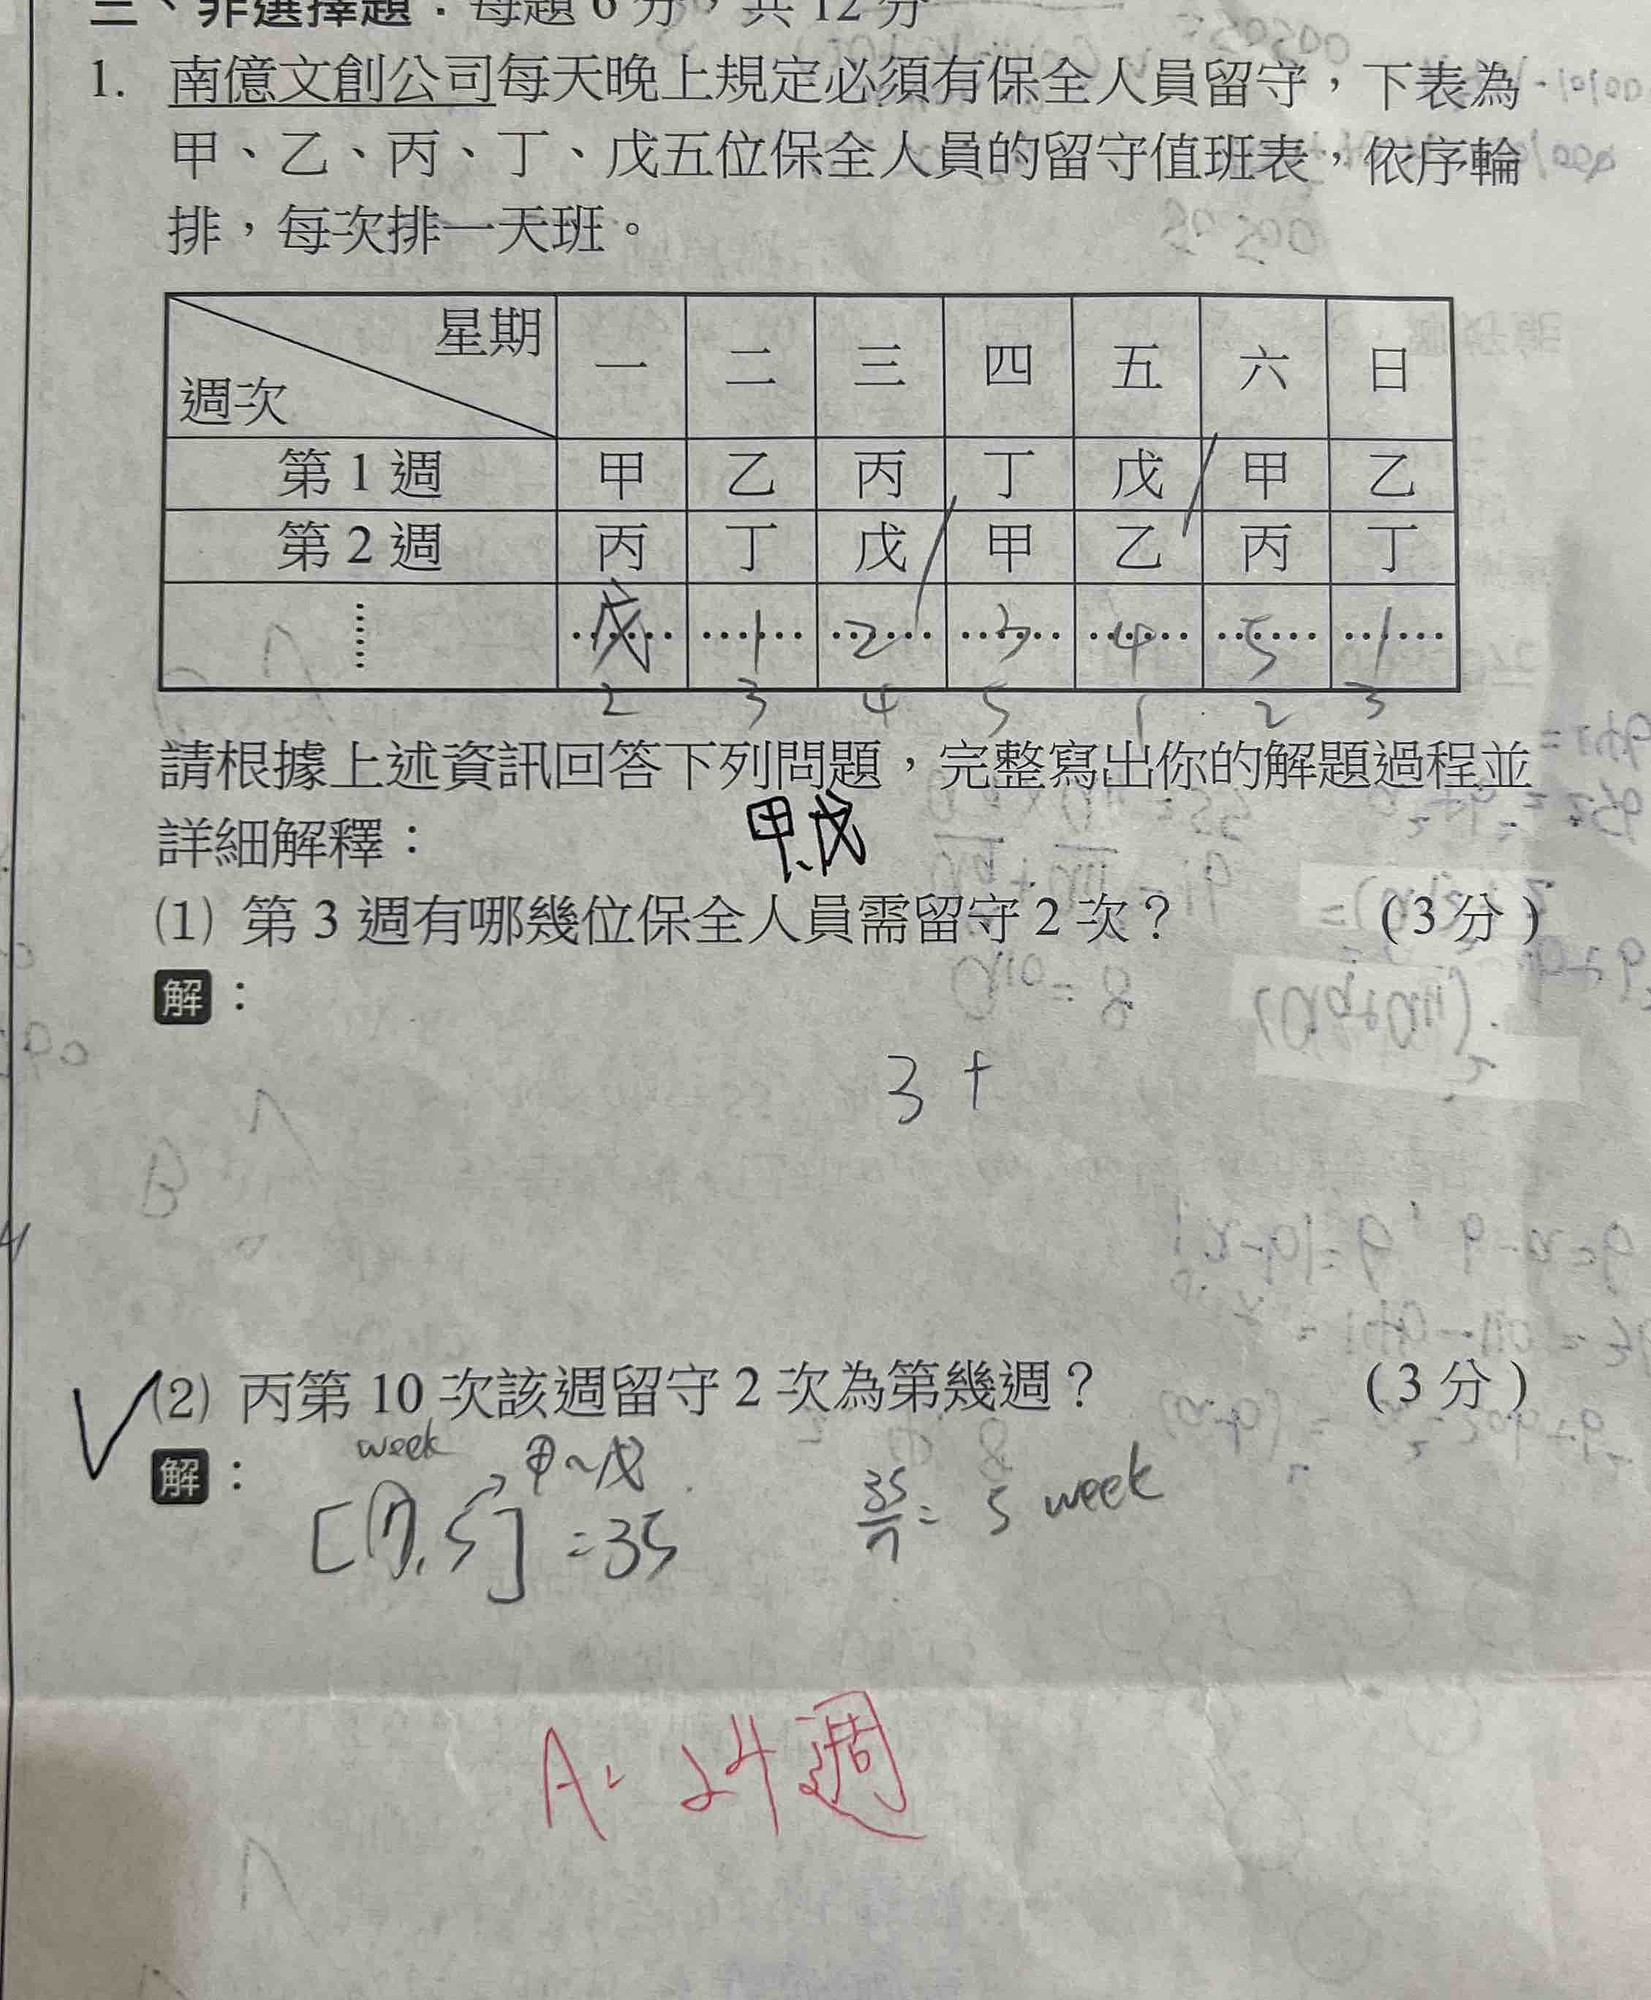 三、非選擇題：每題 6 分，共 12 分
1. 南億文創公司每天晚上規定必須有保全人員留守，下表為
甲、乙、丙、丁、戊五位保全人員的留守值班表，依序輪
排，每次排一天班。
星期 一 二 三 四 五 六 日
週次
第 1 週 甲 乙 丙 丁 戊 甲 乙
第 2 週 丙 丁 戊 甲 乙 丙 丁
…… 戊 1 2 3 4 5 1
2 3 4 5 1 2 3
請根據上述資訊回答下列問題，完整寫出你的解題過程並
詳細解釋：
甲、戊
(1) 第 3 週有哪幾位保全人員需留守 2 次？ (3 分)
解：
3 +
(2) 丙第 10 次該週留守 2 次為第幾週？ (3 分)
解：
week 甲~戊
[7, 5] = 35
35/7 = 5 week
A: 24週